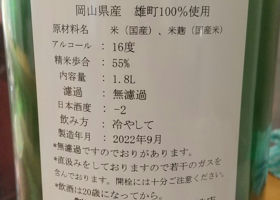 岡山県産 雄町100%使用
原材料名 米（国産）、米麹（国産米）
アルコール : 16度
精米歩合 : 55%
内容量 : 1.8L
濾過 : 無濾過
日本酒度 : -2
飲み方 : 冷やして
製造年月 : 2022年9月
*無濾過ですのでおりがあります。
*直汲みをしておりますので若干のガスを
含んでおります。開栓には十分ご注意ください。
*飲酒は20歳になってから。